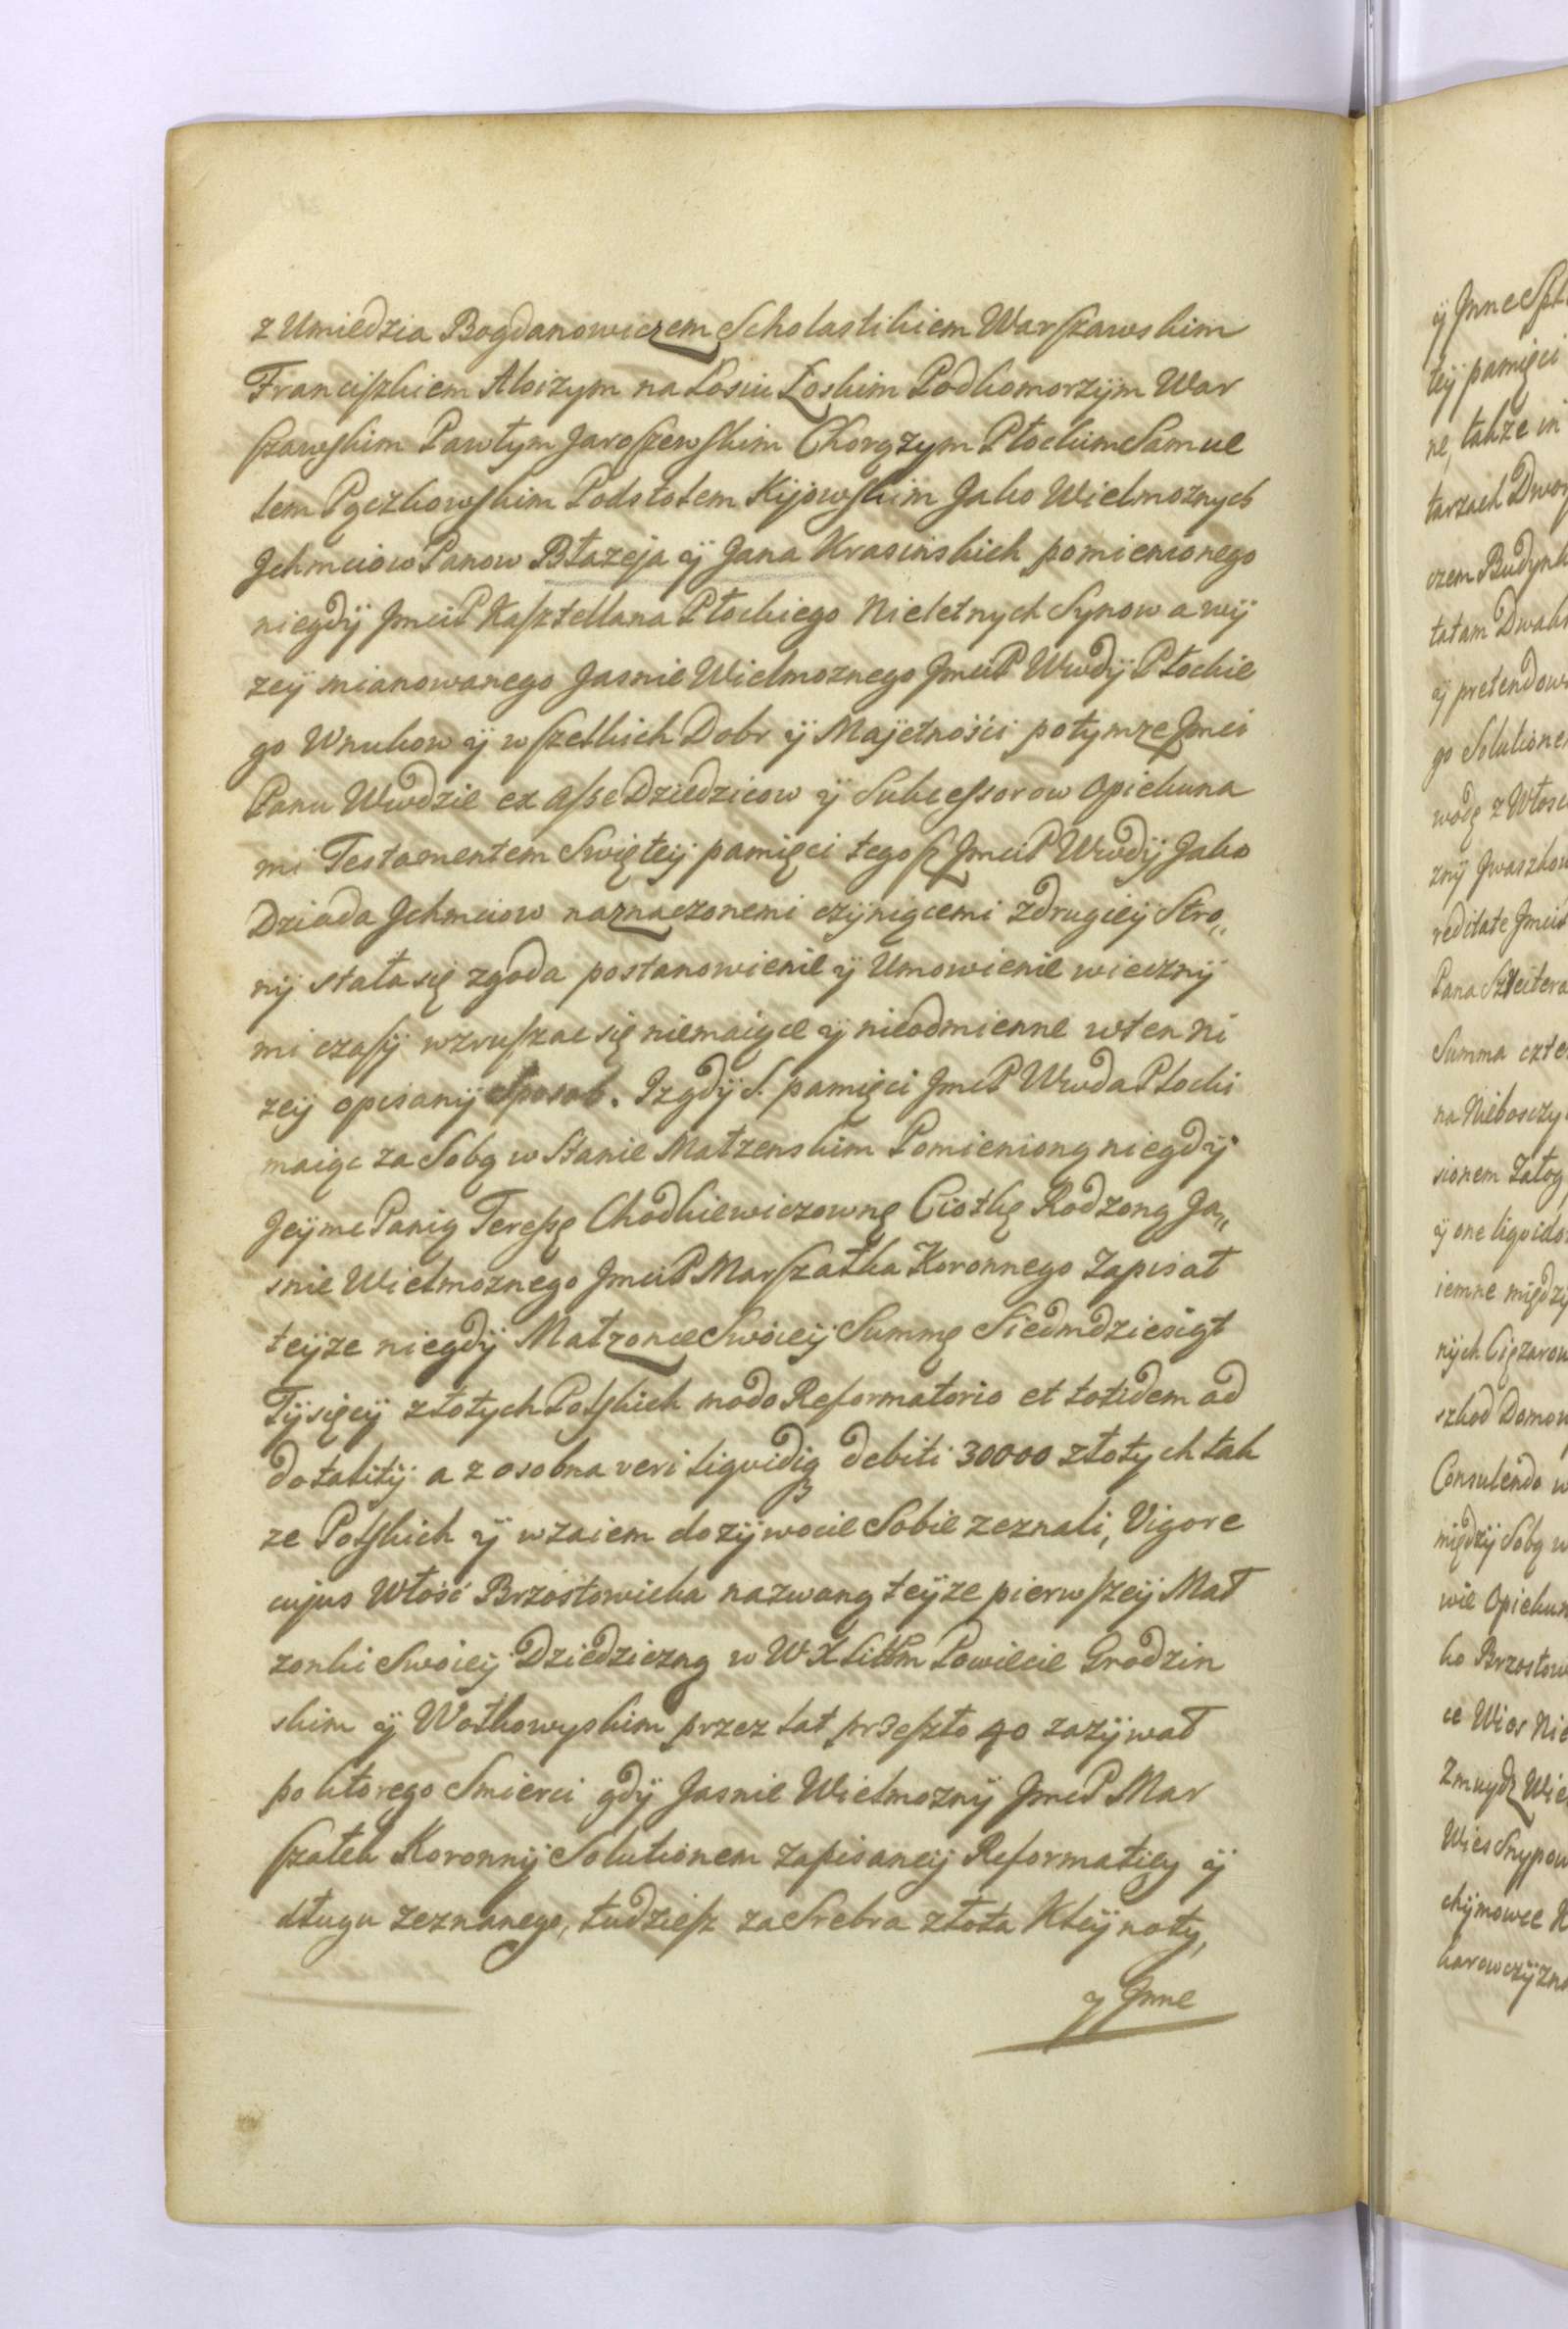 z Umiedzia Bogdanowiczem Scholastikiem Warſzawskim
Franciſzkiem Aloizym na Łosiu Łoskim Podkomorzÿm War
ſzawſkim Pawłym Jaroſzewſkim Chorązym Płockim Samue
lem Pączkowſkim Podstolem Kijowſkim Jako Wielmoznych
Jchmciow Panow Błazeja ÿ Jana Krasinskich pomienionego
niegdÿ JmciP Kaſztellana Płockiego Nieletnych Synow a wÿ
zeÿ mianowanego Jasnie Wielmoznego JmciP Wwdÿ Płockie
go Wnukow ÿ wſzelkich Dobr ÿ Majętności po tymze Jmci
Panu Wwdzie ex aſse Dziedzicow ÿ Sukceſsorow Opiekuna
mi Testamentem Swięteÿ pamięci tegoſz JmciP Wwdÿ Jako
Dziada Jchmciow naznaczonemi czÿnięcemi z drugieÿ Stro„
nÿ stała się zgoda postanowienie ÿ Umowienie wiecznÿ
mi czaſÿ wzruſzac się niemaiące ÿ nieodmienne w ten ni
zeÿ opisanÿ Sposob. Iz gdÿ S. pamięci JmcP Wwda Płocki
maiąc za Sobą w Stanie Małzenskim Pomienioną niegdÿ
Jeÿmc Panią Tereſsę Chodkiewiczownę Ciotkę Rodzoną Ja„
snie Wielmoznego JmciP Marſzałka Koronnego Zapisał
teÿze niegdÿ Małzonce Swoieÿ Summę Siedmdziesiąt
Tÿsięcÿ złotych Polſkich modo Reformatorio et totidem ad
dotalitÿ a z osobna veri liqvidiq debiti 30000 złotych tak
ze Polſkich ÿ wzaiem dozÿwocie Sobie zeznali, Vigore
cujus Włość Brzostowicka nazwaną teÿze pierwſzeÿ Mał
zonki Swoieÿ Dziedziczną w W X Littm Powiecie Grodzin
skim ÿ Wołkowyskim przez lat przeſzło 40 zazÿwał
po ktorego Smierci gdÿ Jasnie Wielmoznÿ JmcP Mar
ſzałek Koronnÿ Solutionem zapisaneÿ Reformatiey ÿ
długu zeznanego, tudzieſz za Srebra złota Kleÿnoty,
y Jnne
ÿ Jnne
teÿ pamięci
ne, takze in
czem Budynk
ÿ pretendow
go Solutione
wodę z Włosc
reditate Jmci
Summa czte
na Niebosczy
iemne międzÿ
nÿch Ciężarow
szkod Domow
Consulendo w
międzÿ Sobą w
wie Opiekun
ko Brzostow
ce Wies Nie